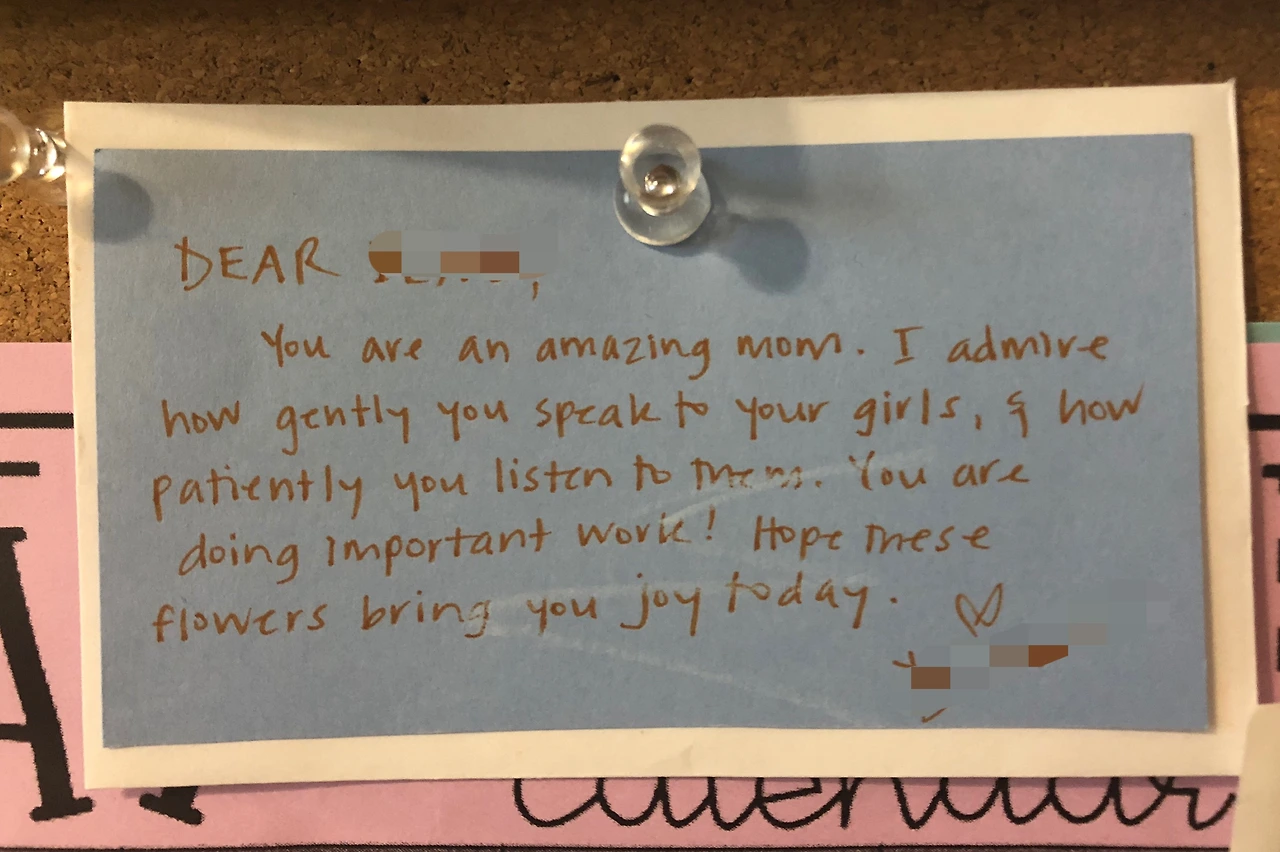 DEAR
You are an amazing mom. I admire
how gently you speak to your girls, & how
patiently you listen to them. You are
doing important work! Hope these
flowers bring you joy today. ♡
calendar